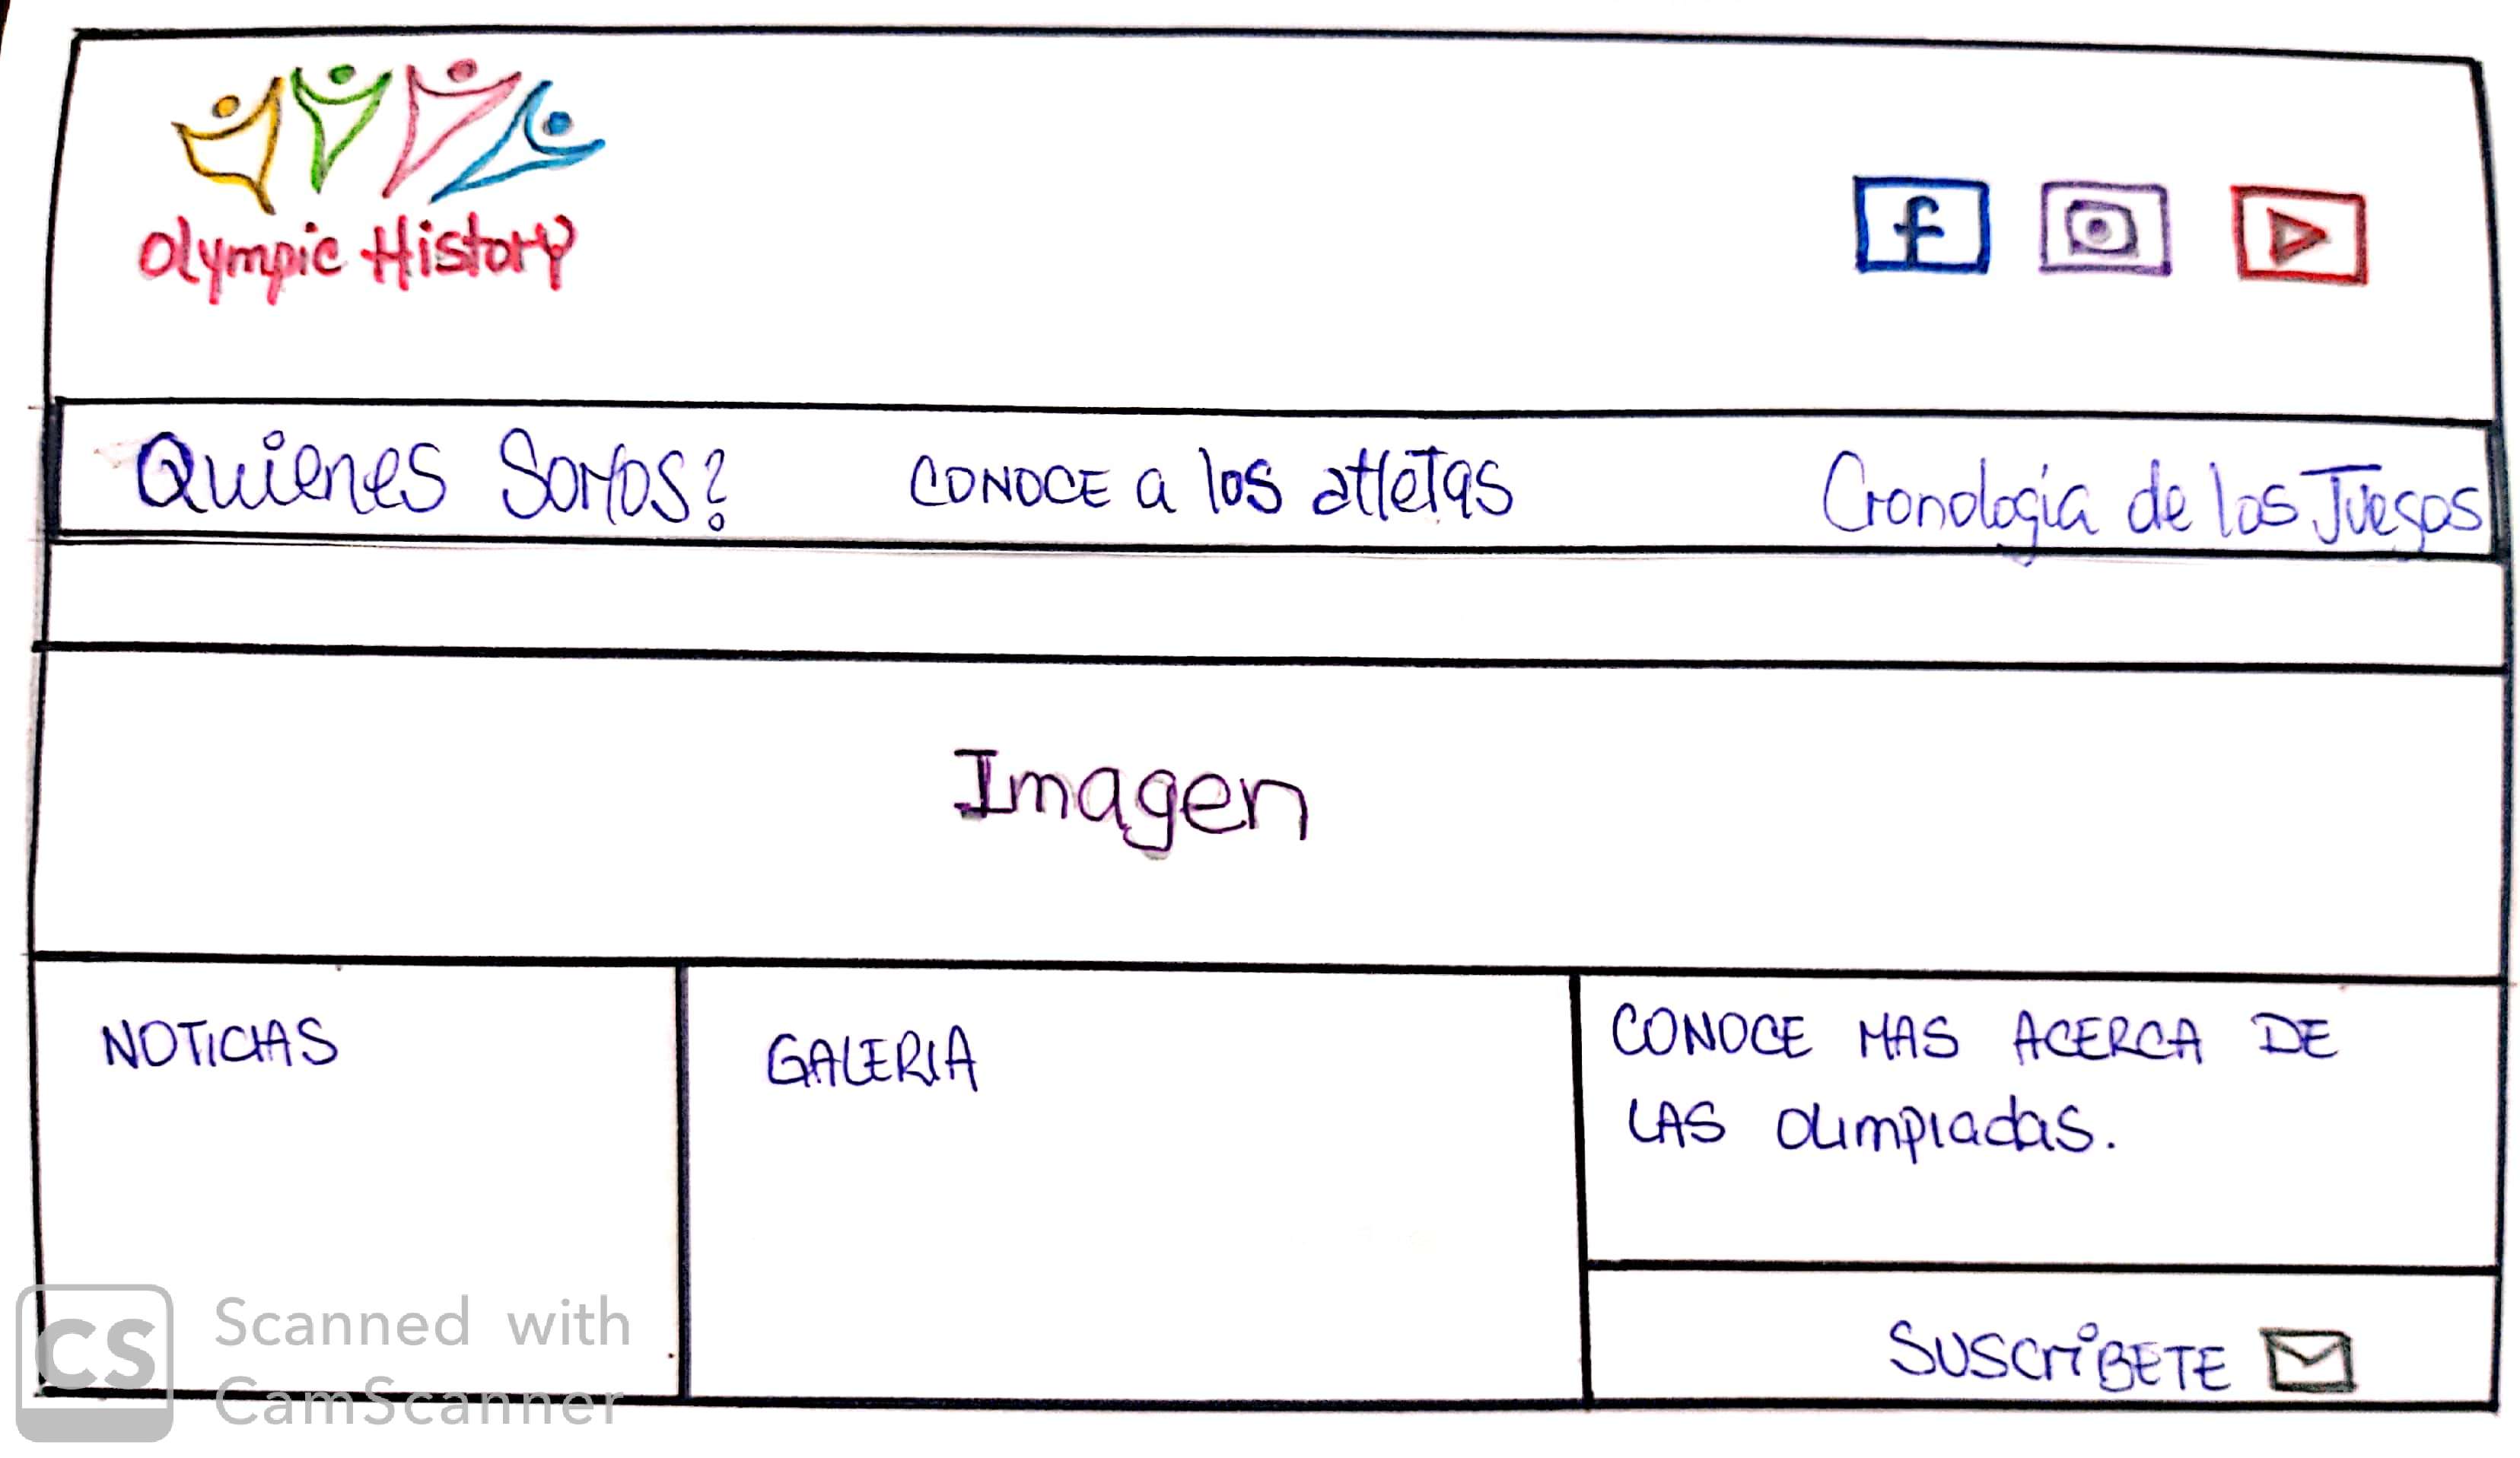 Olympic History
f
Quienes Somos?
CONOCE a los atletas
Cronologia de los Juegos
Imagen
NOTICIAS
GALERIA
CONOCE MAS ACERCA DE
LAS OLImpiadas.
SUSCriBETE
CS
Scanned with
CamScanner